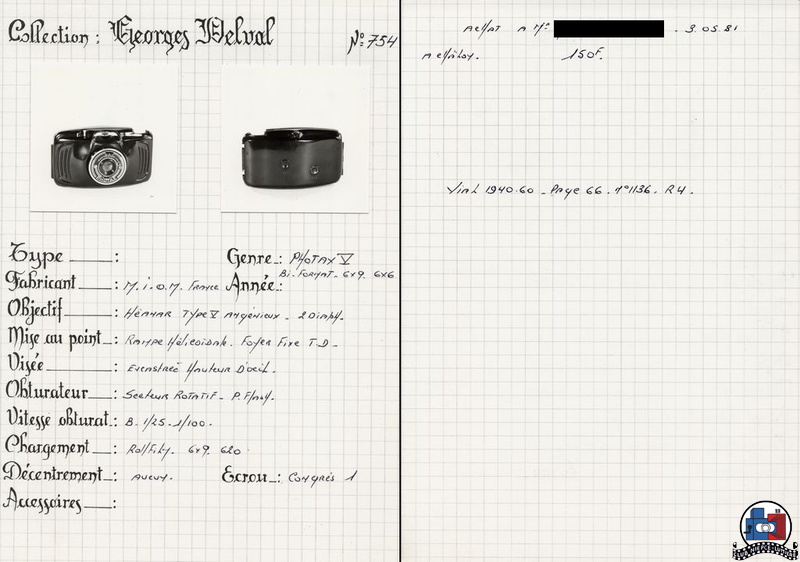 Collection : Georges Delval
N°: 754
Type : Genre : PHOTAX V
Bi. FORMAT - 6x9 6x6
Fabricant : M.I.O.M. France Année :
Objectif : TYPE V Angénieux - 2 Diaph.
Mise au point : Rampe Hélicoïdale. Foyer Fixe T.D -
Visée : Hauteur D'oeil.
Obturateur : Secteur ROTATIF - P. Flash.
Vitesse obturat. : B. 1/25 - 1/100.
Chargement : Roll Film. 6x9. 620
Décentrement : Aucun. Ecrou : CONGRÈS 1
Accessoires :
ACHAT A Mr - 3.05.81
150F.
Vial 1940.60 - Page 66. n°1136. R4.